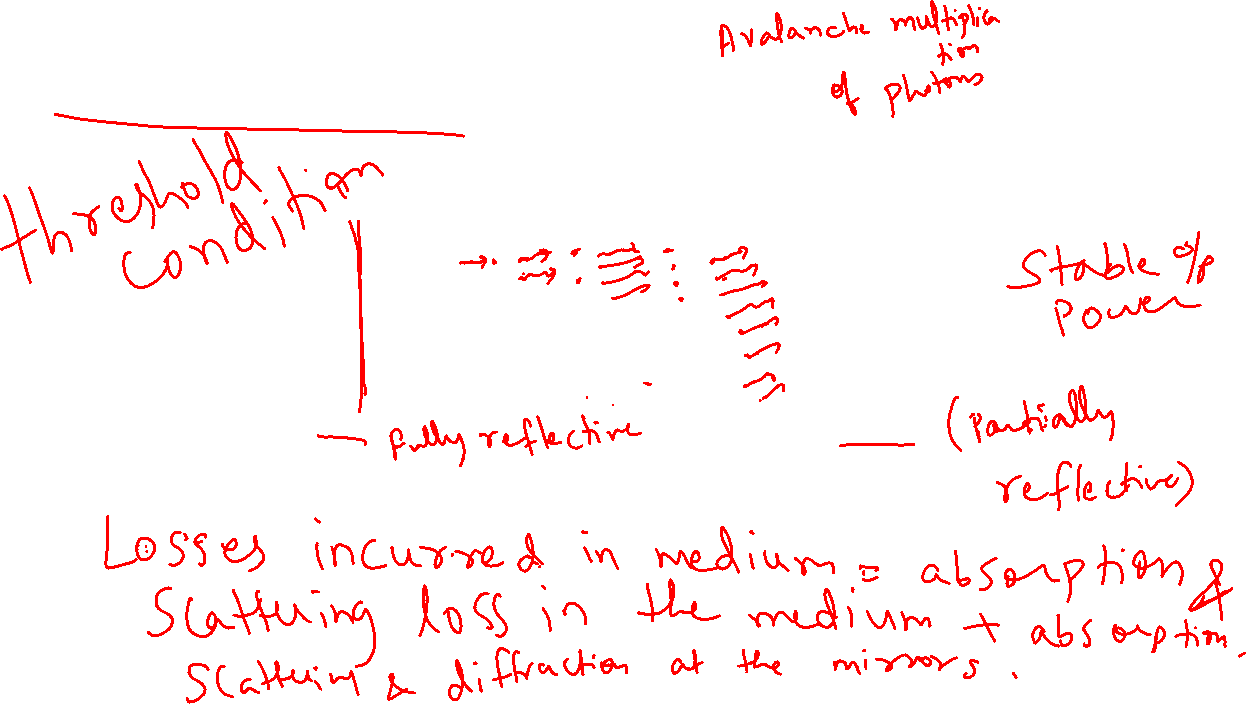 Avalanche multiplica
tion
of photons
threshold
condition
Stable o/p
Power
fully reflective
(Partially
reflective)
Losses incurred in medium = absorption &
Scattering loss in the medium + absorption,
Scattering & diffraction at the mirrors.